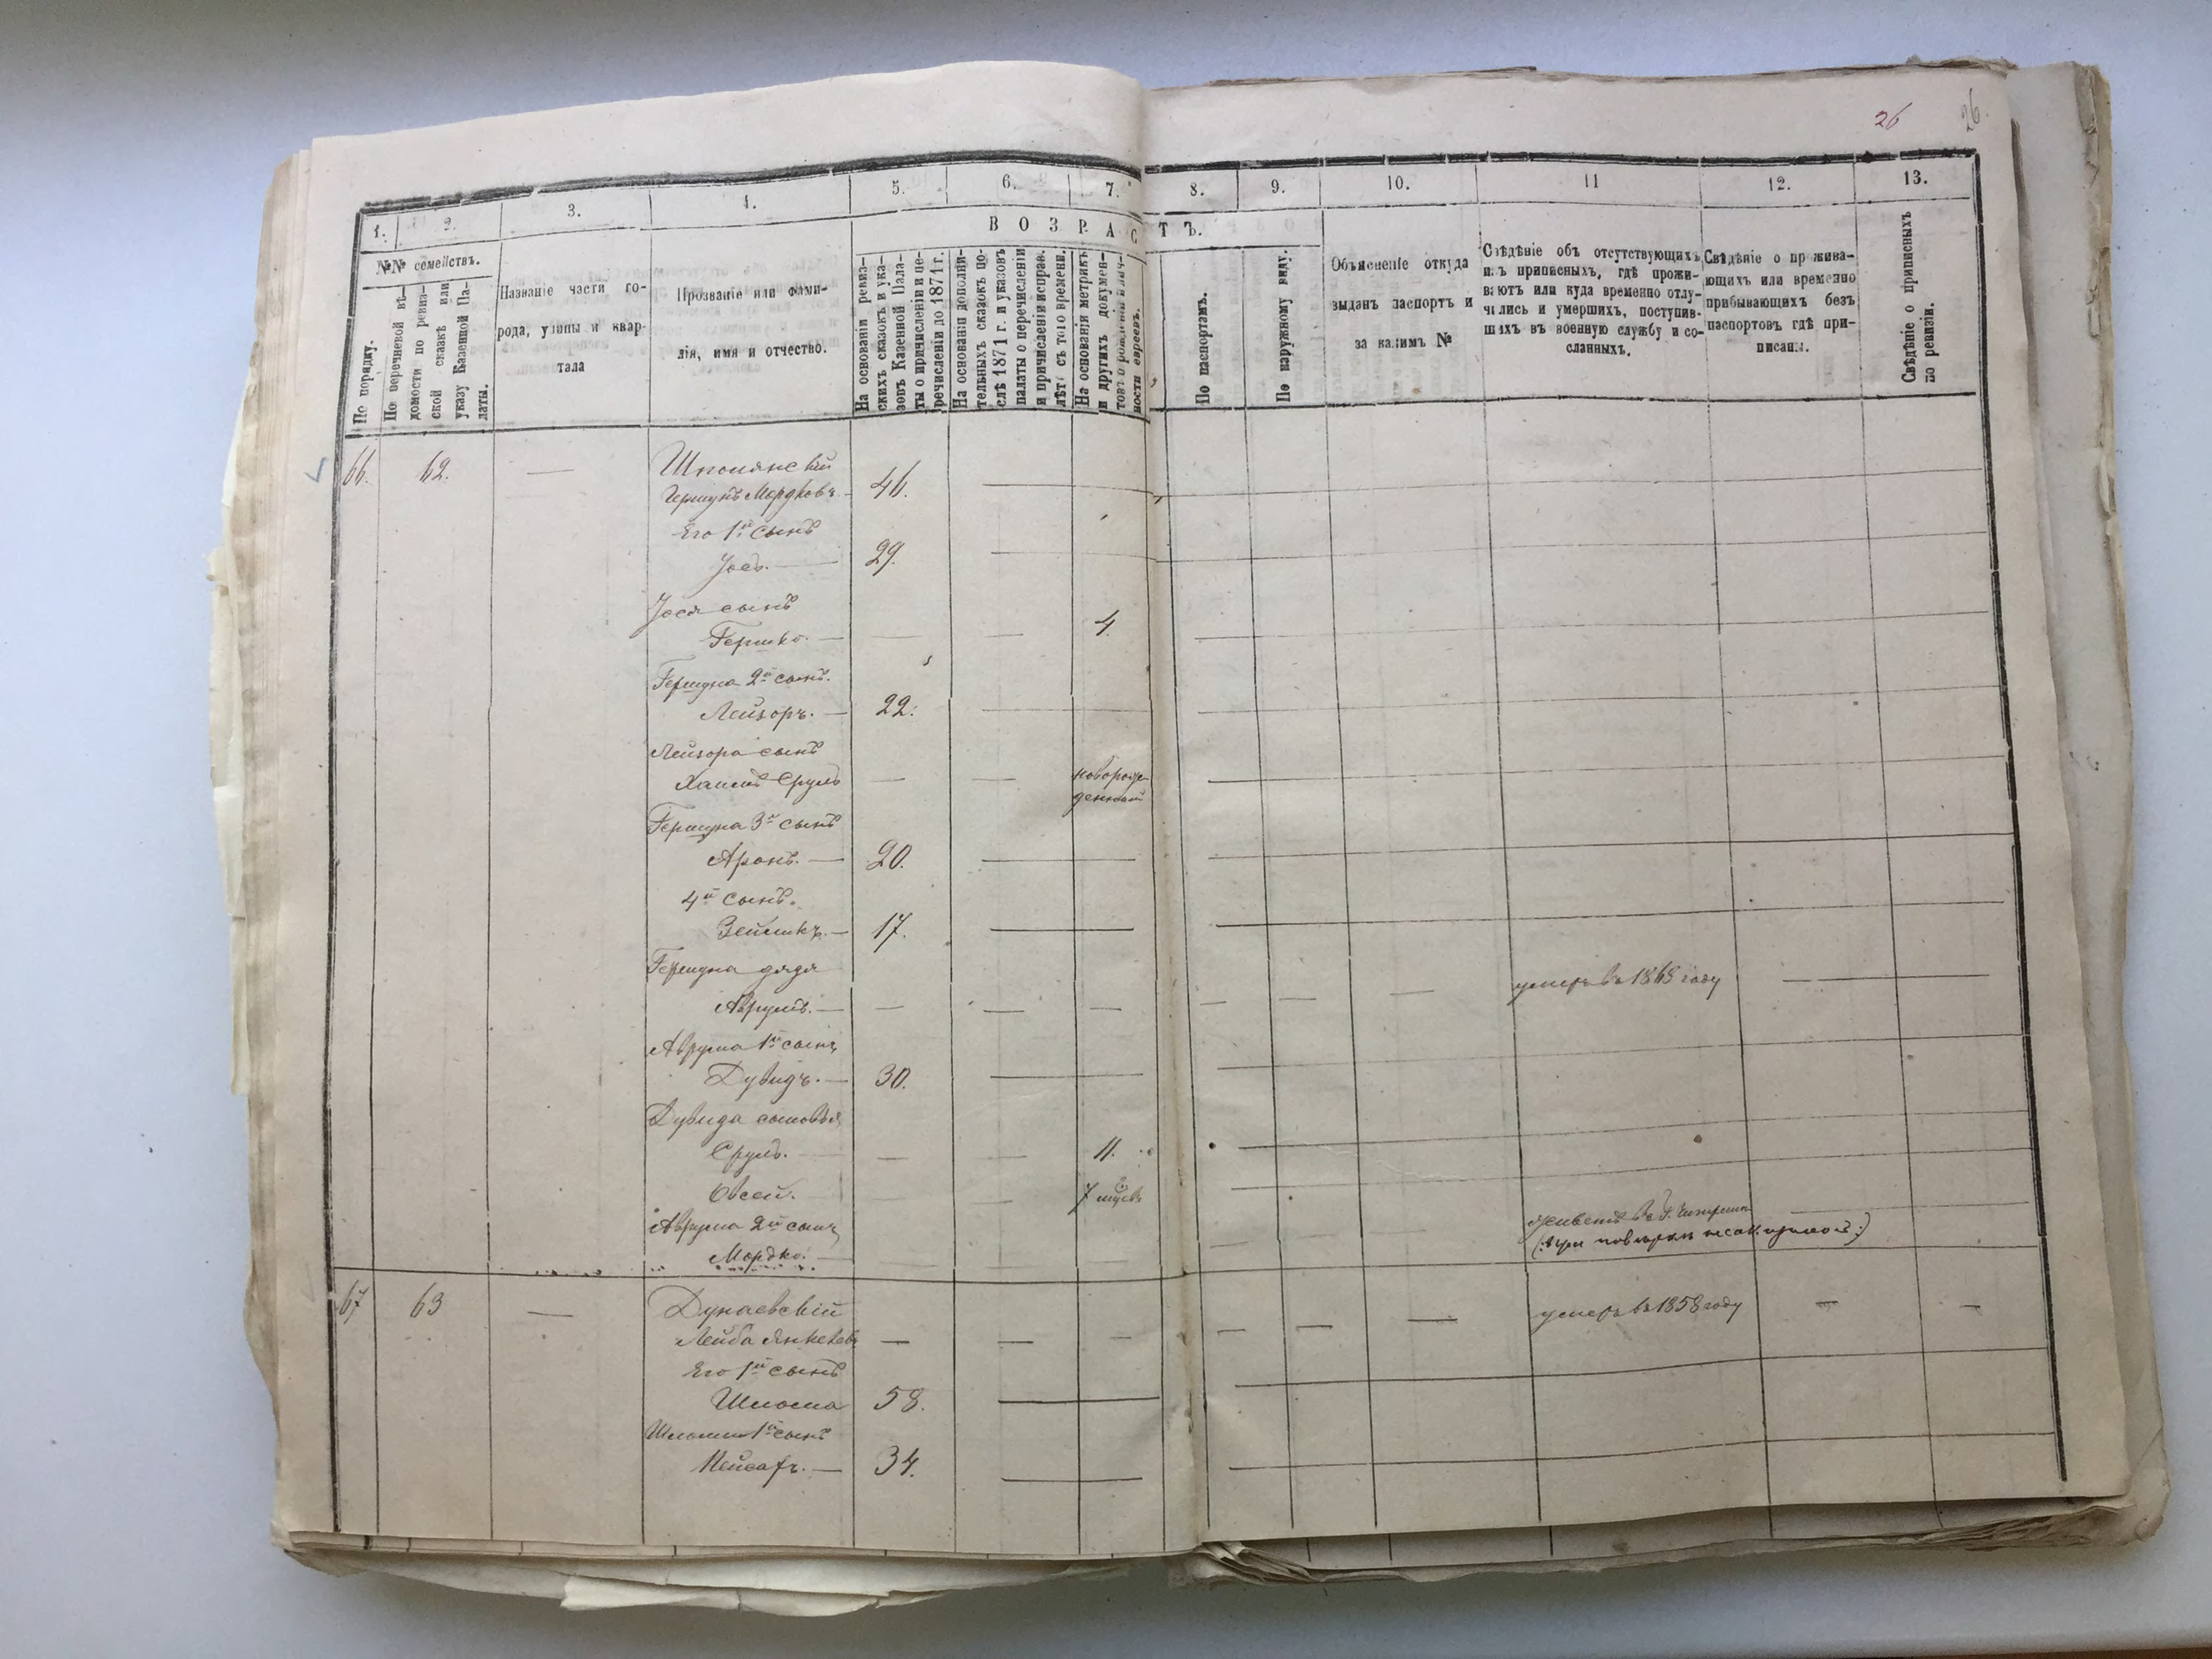 26 26.
1. 2. 3. 4. 5. 6. 7. 8. 9. 10. 11 12. 13.
В О З Р А С Т Ъ.
№№ семействъ.
По порядку.
По перечневой вѣ-
домости по ревиз-
ской сказкѣ или
указу Казенной Па-
латы.
Названіе части го-
рода, улицы и квар-
тала
Прозваніе или фами-
лія, имя и отчество.
На основаніи ревиз-
скихъ сказокъ и ука-
зовъ Казенной Пала-
ты о причисленіи и пе-
речисленіи до 1871 г.
На основаніи дополни-
тельныхъ сказокъ по-
слѣ 1871 г. и указовъ
палаты о перечисленіи
и причисленіи исправ.
лѣтъ съ того времени.
На основаніи метрикъ
и другихъ докумен-
товъ о рожденіи и лич-
ности евреевъ.
По паспортамъ.
По наружному виду.
Объясненіе откуда
выданъ паспортъ и
за какимъ №
Свѣдѣніе объ отсутствующихъ
изъ приписныхъ, гдѣ прожи-
ваютъ или куда временно отлу-
чились и умершихъ, поступив-
шихъ въ военную службу и со-
сланныхъ.
Свѣдѣніе о прожива-
ющихъ или временно
прибывающихъ безъ
паспортовъ гдѣ при-
писаны.
Свѣдѣніе о приписныхъ
по ревизіи.
66. 62. — Шполянскій
Гершунъ Мордковъ 46.
Его 1й сынъ
Іось. — 29.
Іося сынъ
Гершко. — 4.
Гершуна 2й сынъ.
Лейзоръ. — 22.
Лейзора сынъ
Хаимъ Сруль — — новорож-
денный
Гершуна 3й сынъ
Аронъ. — 20.
4й сынъ.
Зейликъ. — 17.
Гершуна дядя умеръ въ 1868 году
Аврумъ. —
Аврума 1й сынъ
Дувидъ. — 30.
Дувида сыновья
Сруль. — 11.
Овсей. 7 мцевъ
Аврума 2й сынъ живетъ въ г. Чигирин
Мордко. —
67 63 — Дунаевскій умеръ въ 1858 году
Лейба Янкелевъ
Его 1й сынъ
Шлома 58.
Шломы 1й сынъ
Пейсахъ. — 34.